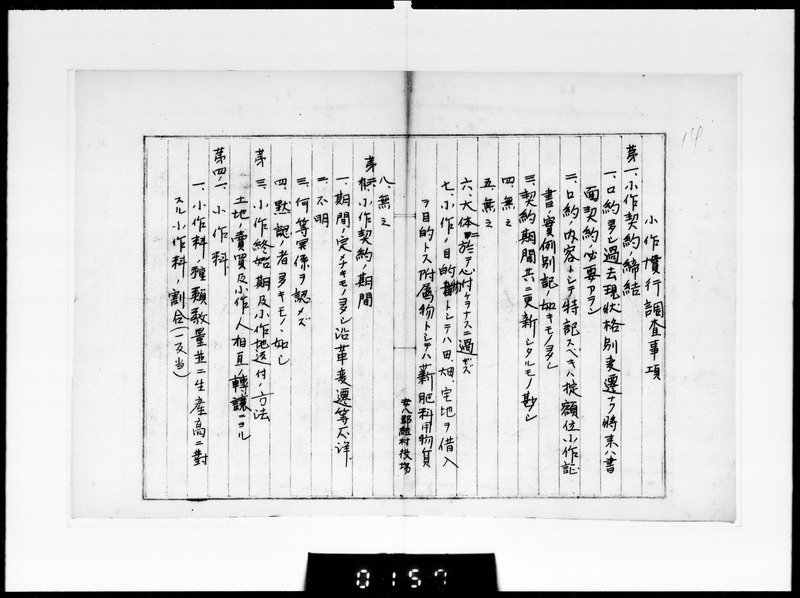 14
小作慣行調査事項
第一、小作契約締結
一、口約多シ過去現状格別変遷ナク将来ハ書
面契約ノ必要アラン
二、口約ノ内容トシテ特記スベキハ掟額位小作証
書ノ實例別記ノ如キモノ多シ
三、契約期間共ニ更新シタルモノ尠シ
四、無之
五、無之
六、大体ニ於テ心付ケヲナスニ過ギズ
七、小作ノ目的物トシテハ田、畑、宅地ヲ借入
ヲ目的トス附属物トシテハ薪肥料用物質
安八郡 村役場
八、無之
第二、小作契約ノ期間
一、期間ノ定メナキモノ多シ沿革変遷等不詳
二、不明
三、何等関係ヲ認メズ
四、黙認ノ者多キモノヽ如シ
第三、小作終始期及小作地返付ノ方法
土地ノ賣買及小作人相互ノ轉譲ニヨル
第四、小作料
一、小作料ノ種類数量並ニ生産高ニ對
スル小作料ノ割合(一反当)
0157